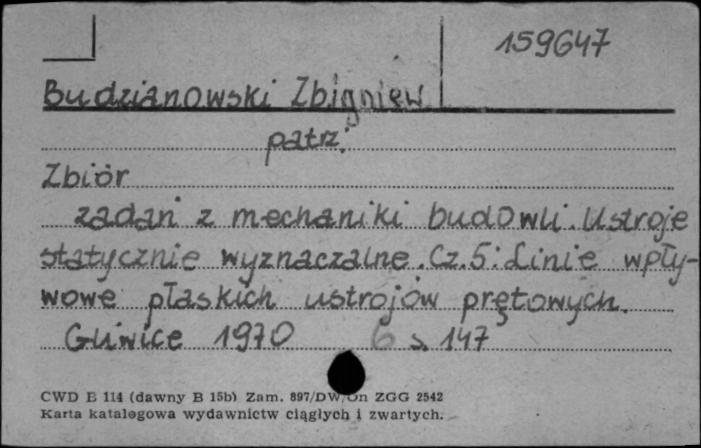 159647
Budzianowski Zbigniew
patrz:
Zbiór
zadań z mechaniki budowli. Ustroje
statycznie wyznaczalne. Cz. 5: Linie wpły-
wowe płaskich ustrojów prętowych.
Gliwice 1970 6 s. 147
CWD E 114 (dawny B 15b) Zam. 897/DW/On ZGG 2542
Karta katalogowa wydawnictw ciągłych i zwartych.